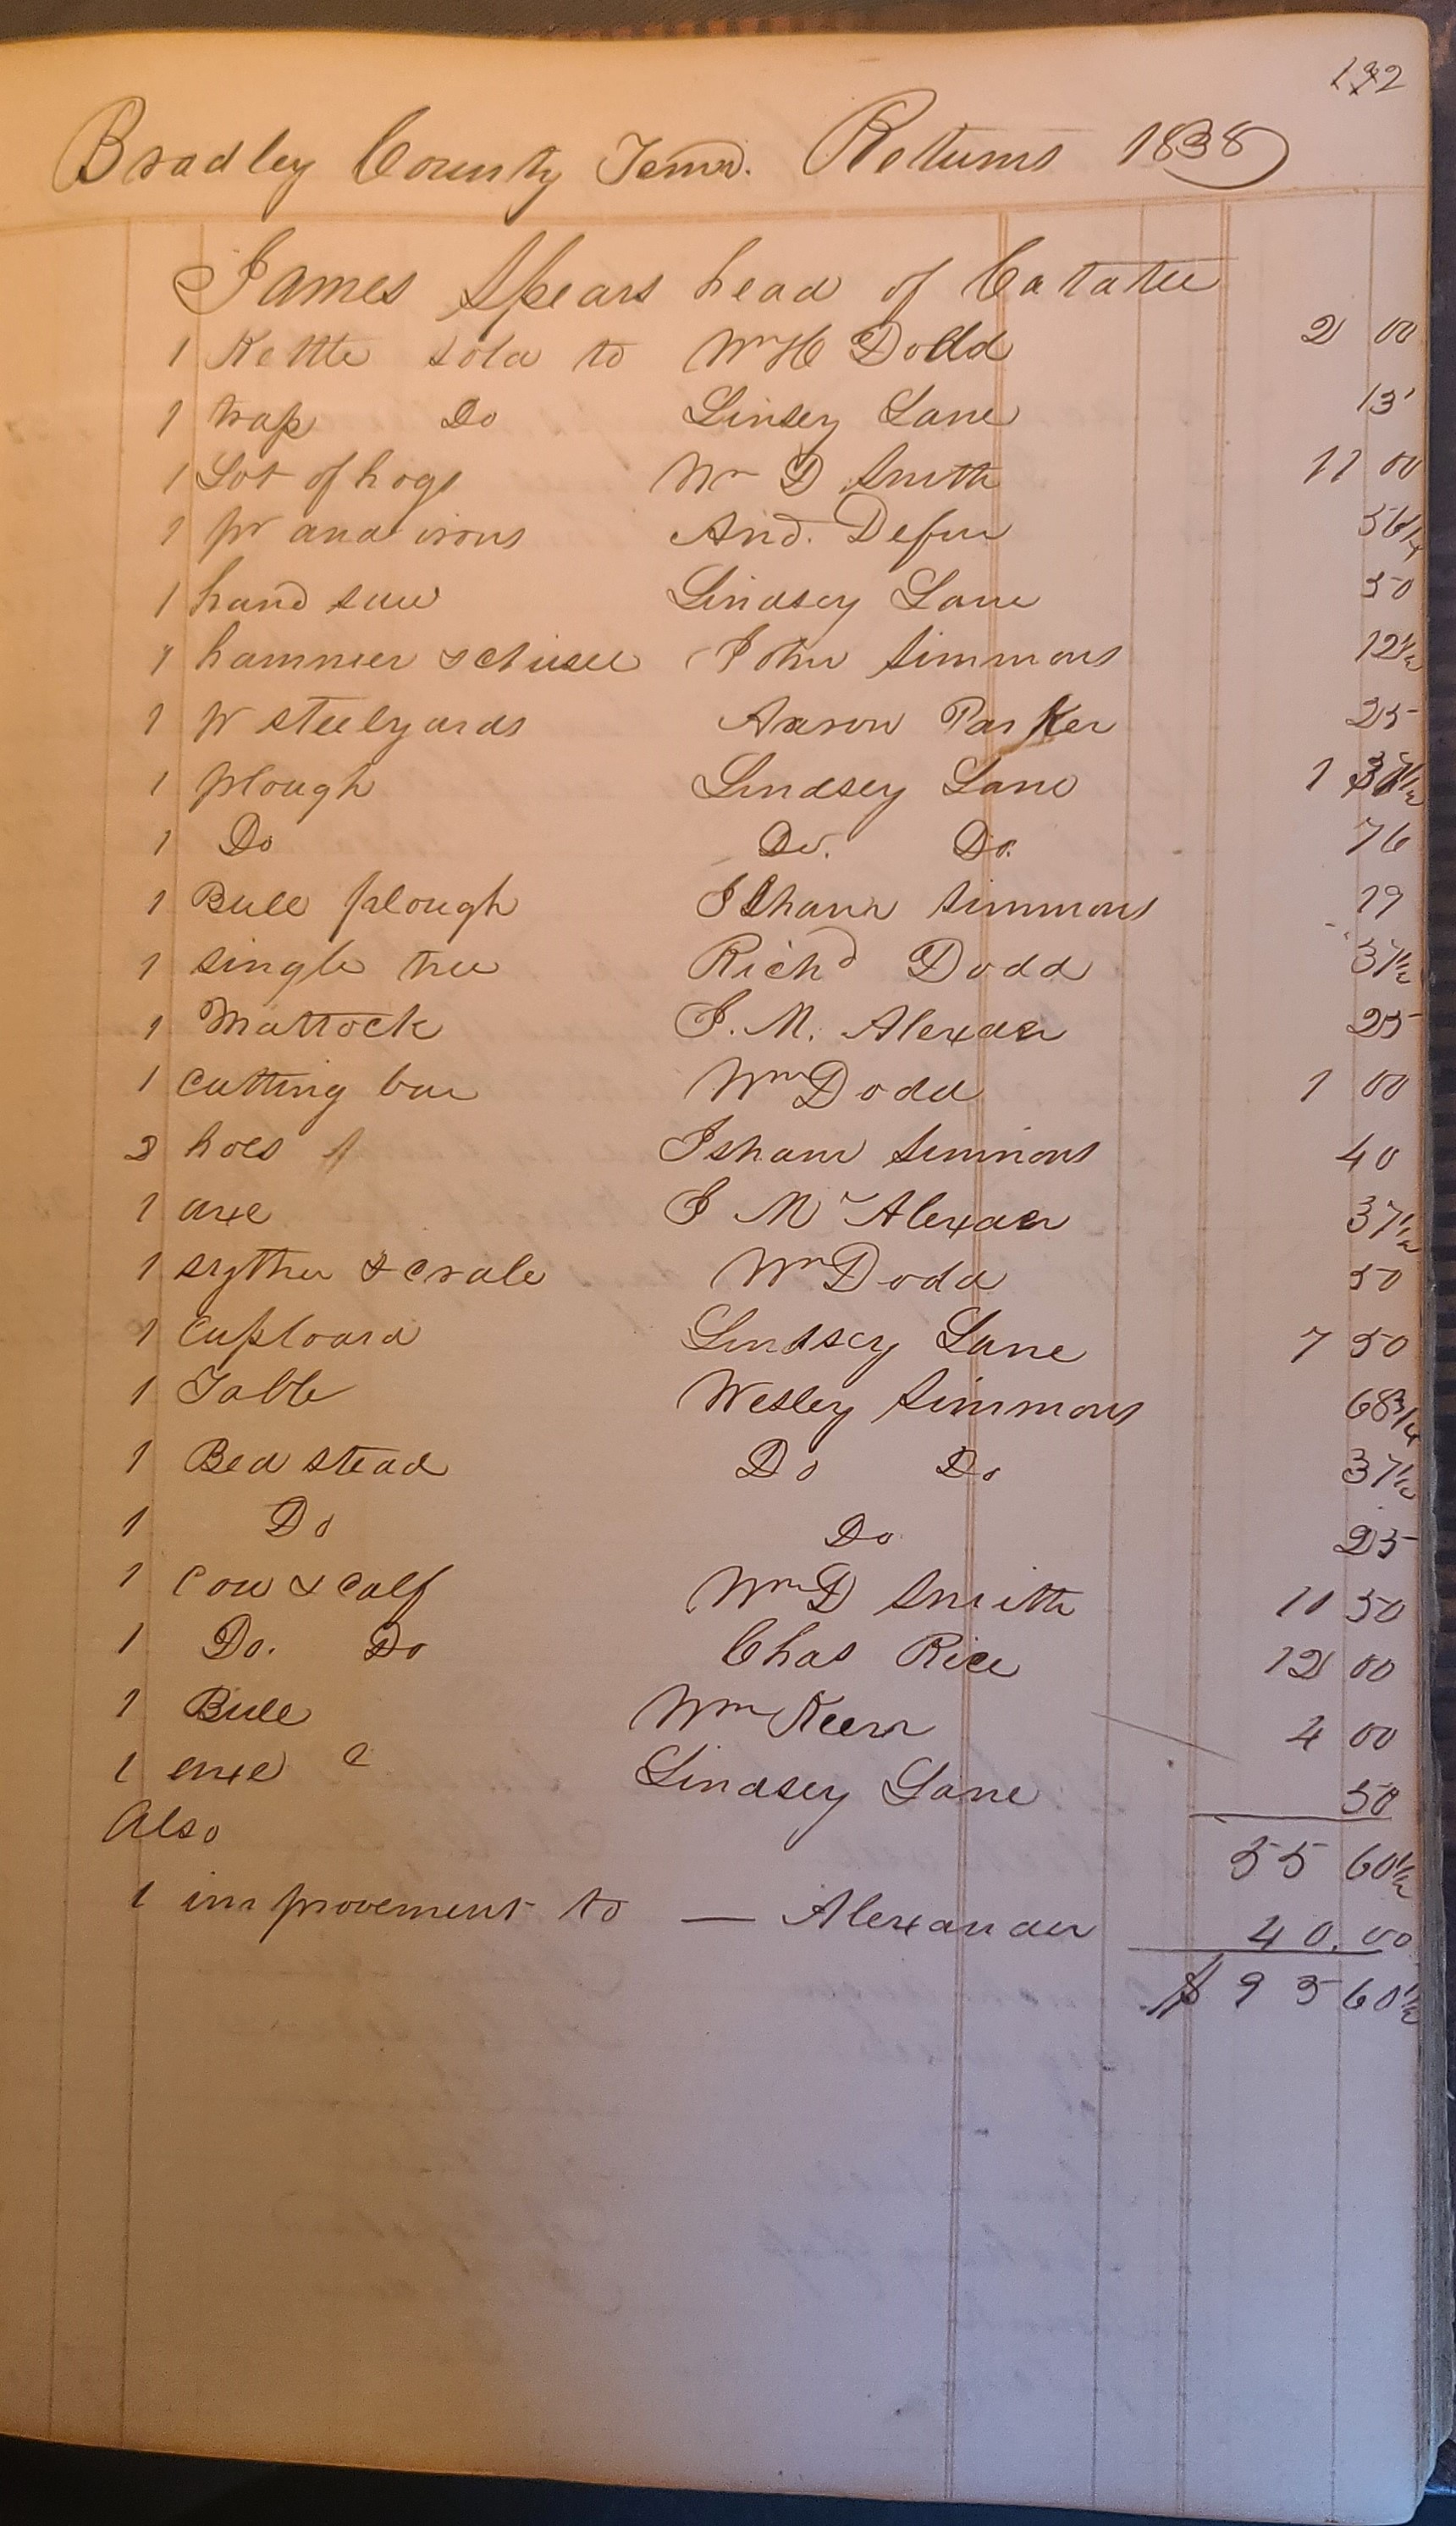 192
Bradley County Tenn. Returns 1838
James Spears head of Catatee
1 Kettle sold to Wm H Dodd 2 00
1 trap Do Linsey Lane 13
1 Lot of hogs Wm D Smith 11 00
1 pr and irons And. Defur 56 1/4
1 hand saw Lindsey Lane 50
1 hammer & chisel John Simmons 12 1/2
1 pr steelyards Aaron Parker 25
1 plough Lindsey Lane 1 37 1/2
1 Do Do. Do. 76
1 Bull plough Isham Simmons 19
1 single tree Richd Dodd 37 1/2
1 Mattock J. M. Alexaer 25
1 Cutting box Wm Dodd 1 00
2 hoes Isham Simmons 40
1 axe J M Alexaer 37 1/2
1 sythe & crale Wm Dodd 50
1 Cupboard Lindsey Lane 7 50
1 Table Wesley Simmons 68 3/4
1 Bed stead Do Do 37 1/2
1 Do Do 25
1 Cow & Calf Wm D Smith 10 50
1 Do. Do Chas Rice 12 00
1 Bull Wm Keern 4 00
1 axe Lindsey Lane 50
Also 55 60 1/2
1 improvement to — Alexander 40.00
$ 95 60 1/2